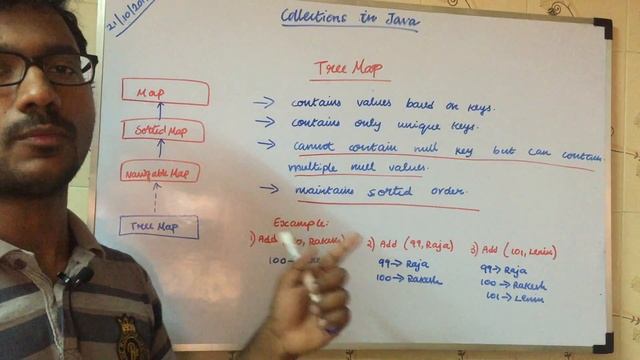 21/10/201
Collections in Java
Tree Map
Map
Sorted Map
Navigable Map
Tree Map
→ contains values based on keys.
→ contains only unique keys.
→ cannot contain null key but can contain
multiple null values.
→ maintains sorted order.
Example:
1) Add
100→
2) Add (99, Raja)
99→Raja
100→Rakesh
3) Add (101, Lenin)
99→Raja
100→Rakesh
101→Lenin